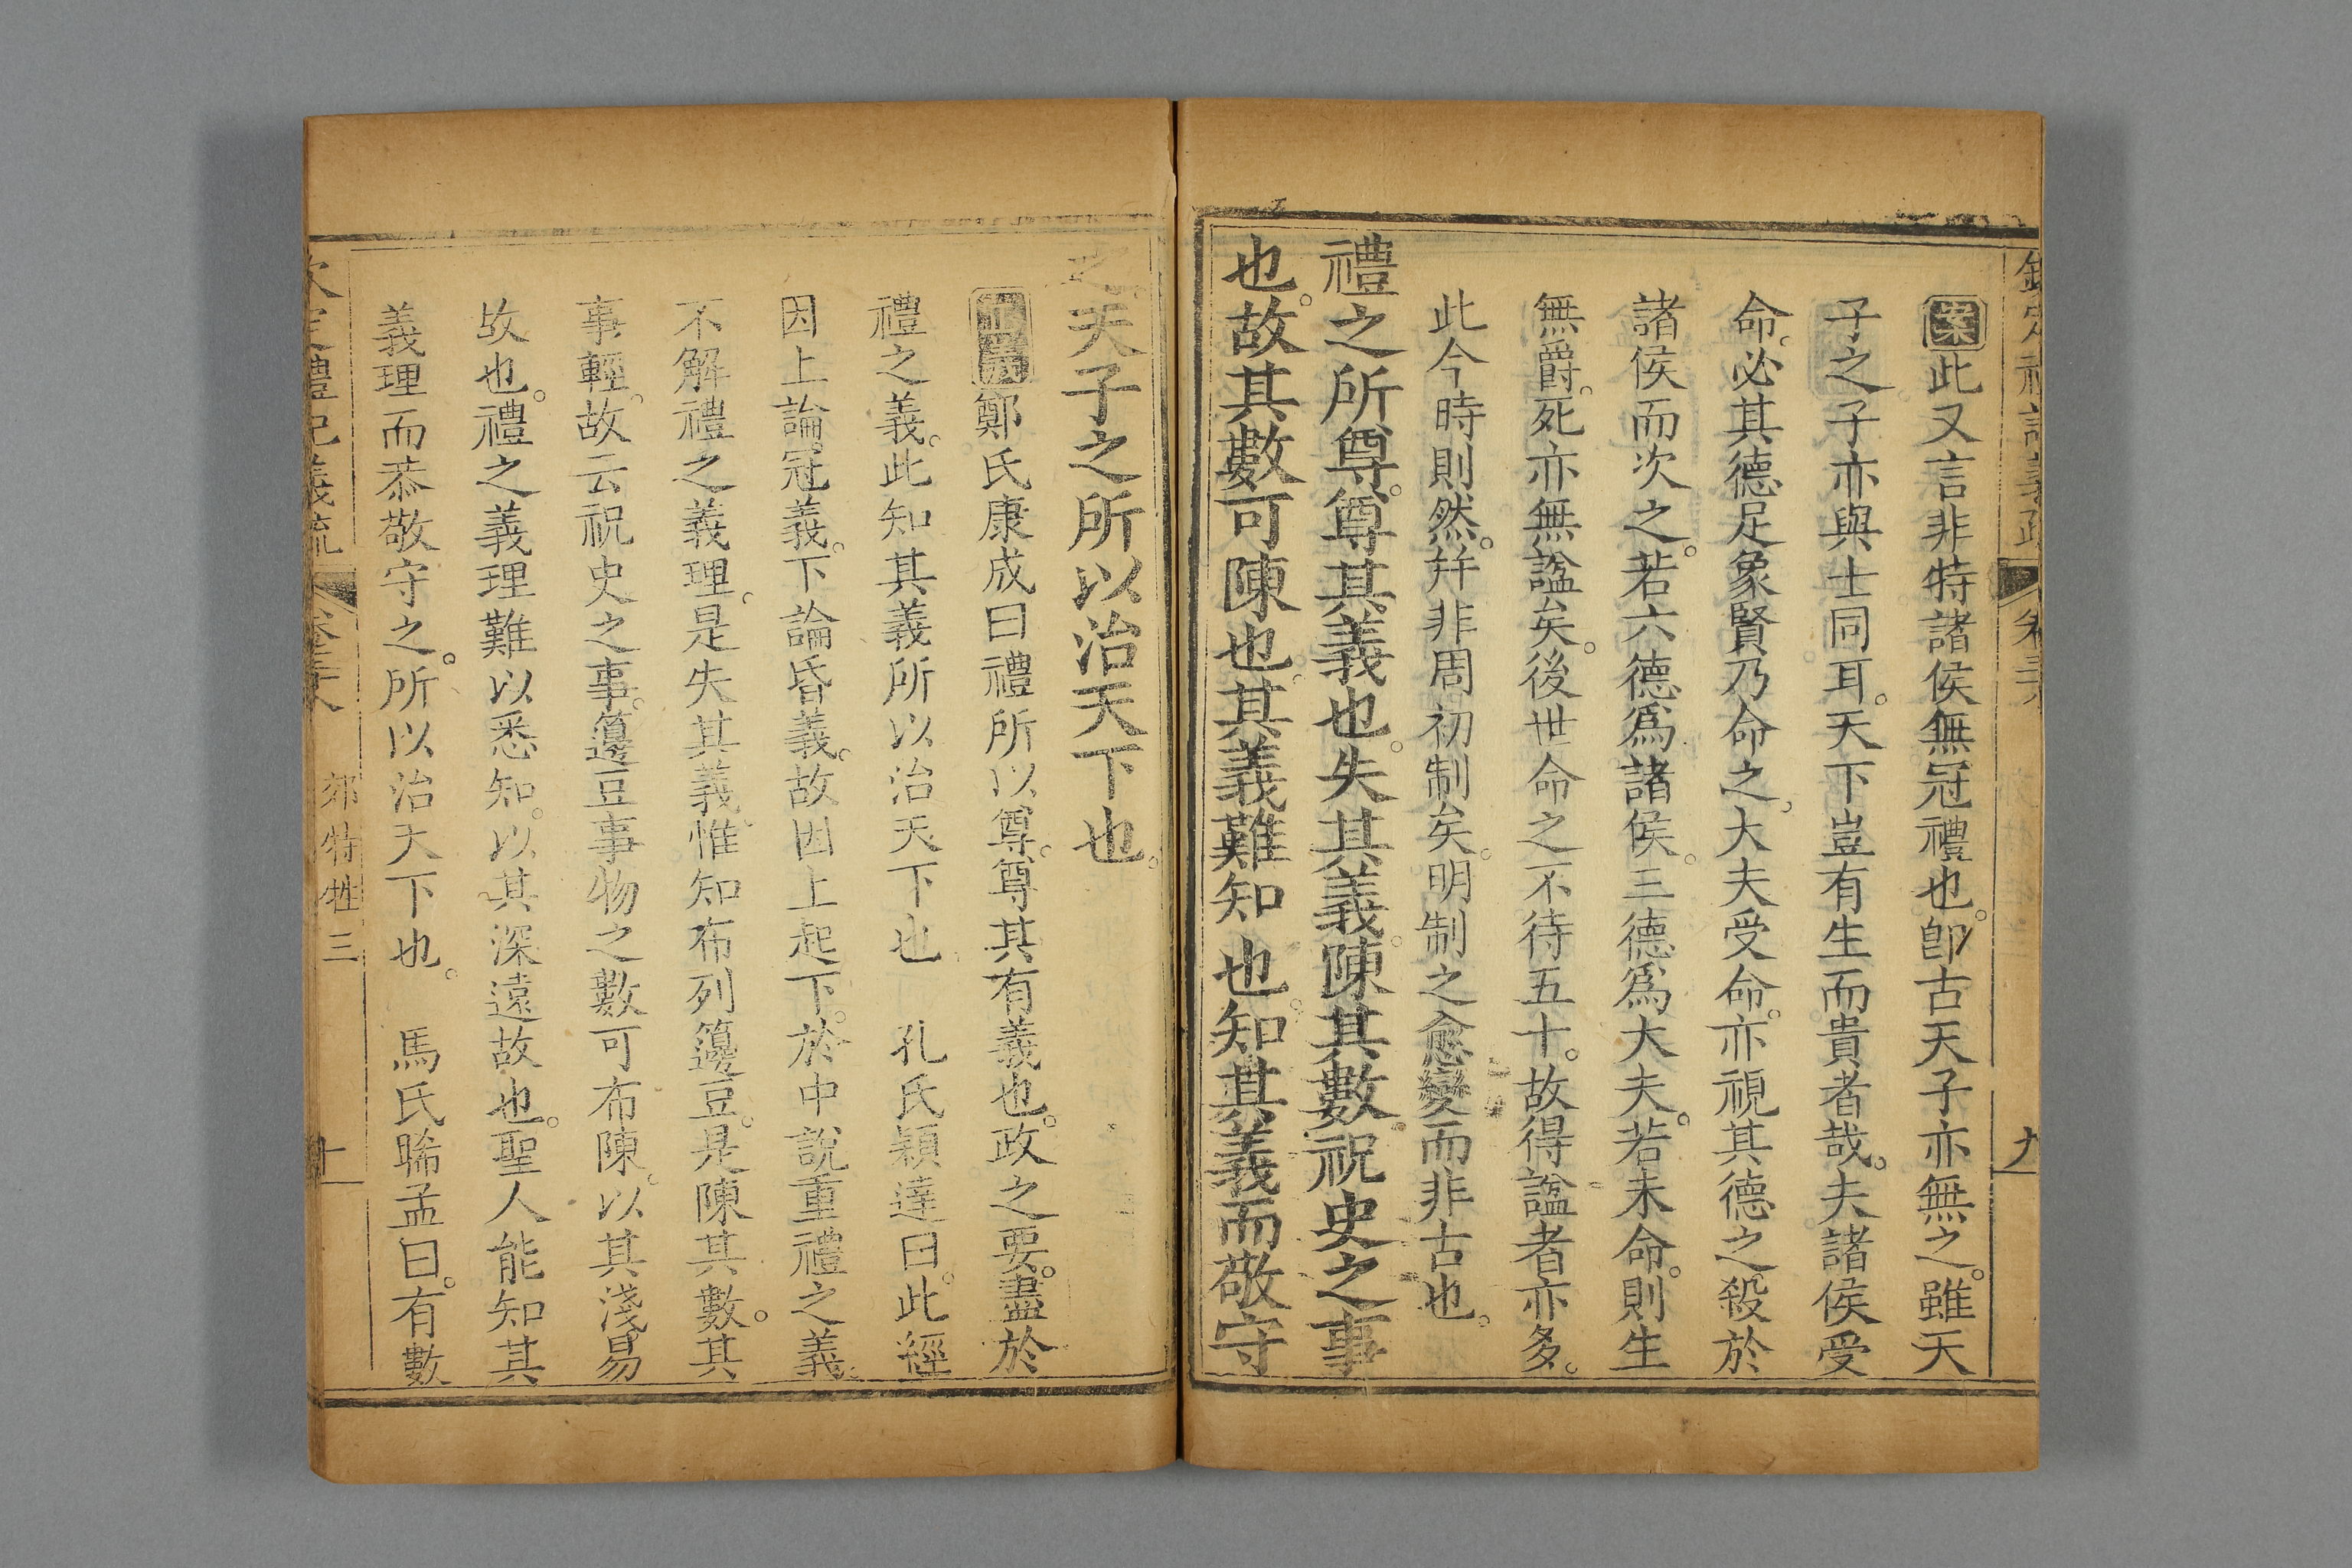 欽定禮記義疏 卷三 九
案此又言非特諸侯無冠禮也。卽古天子亦無之。雖天
子之子亦與士同耳。天下豈有生而貴者哉。夫諸侯受
命。必其德足象賢乃命之。大夫受命。亦視其德之殺於
諸侯而次之。若六德爲諸侯。三德爲大夫。若未命。則生
無爵。死亦無諡矣。後世命之不待五十。故得諡者亦多。
此今時則然。幷非周初制矣。明制之愈變而非古也。
禮之所尊。尊其義也。失其義。陳其數。祝史之事
也。故其數可陳也。其義難知也。知其義而敬守
之。天子之所以治天下也。
正義鄭氏康成曰禮所以尊。尊其有義也。政之要。盡於
禮之義。此知其義所以治天下也。 孔氏穎達曰。此經
因上論冠義。下論昏義。故因上起下。於中說重禮之義
不解禮之義理。是失其義。惟知布列籩豆。是陳其數。其
事輕。故云祝史之事。籩豆事物之數可布陳。以其淺易
故也。禮之義理難以悉知。以其深遠故也。聖人能知其
義理而恭敬守之。所以治天下也。 馬氏晞孟曰。有數
欽定禮記義疏 卷三 郊特牲三 十